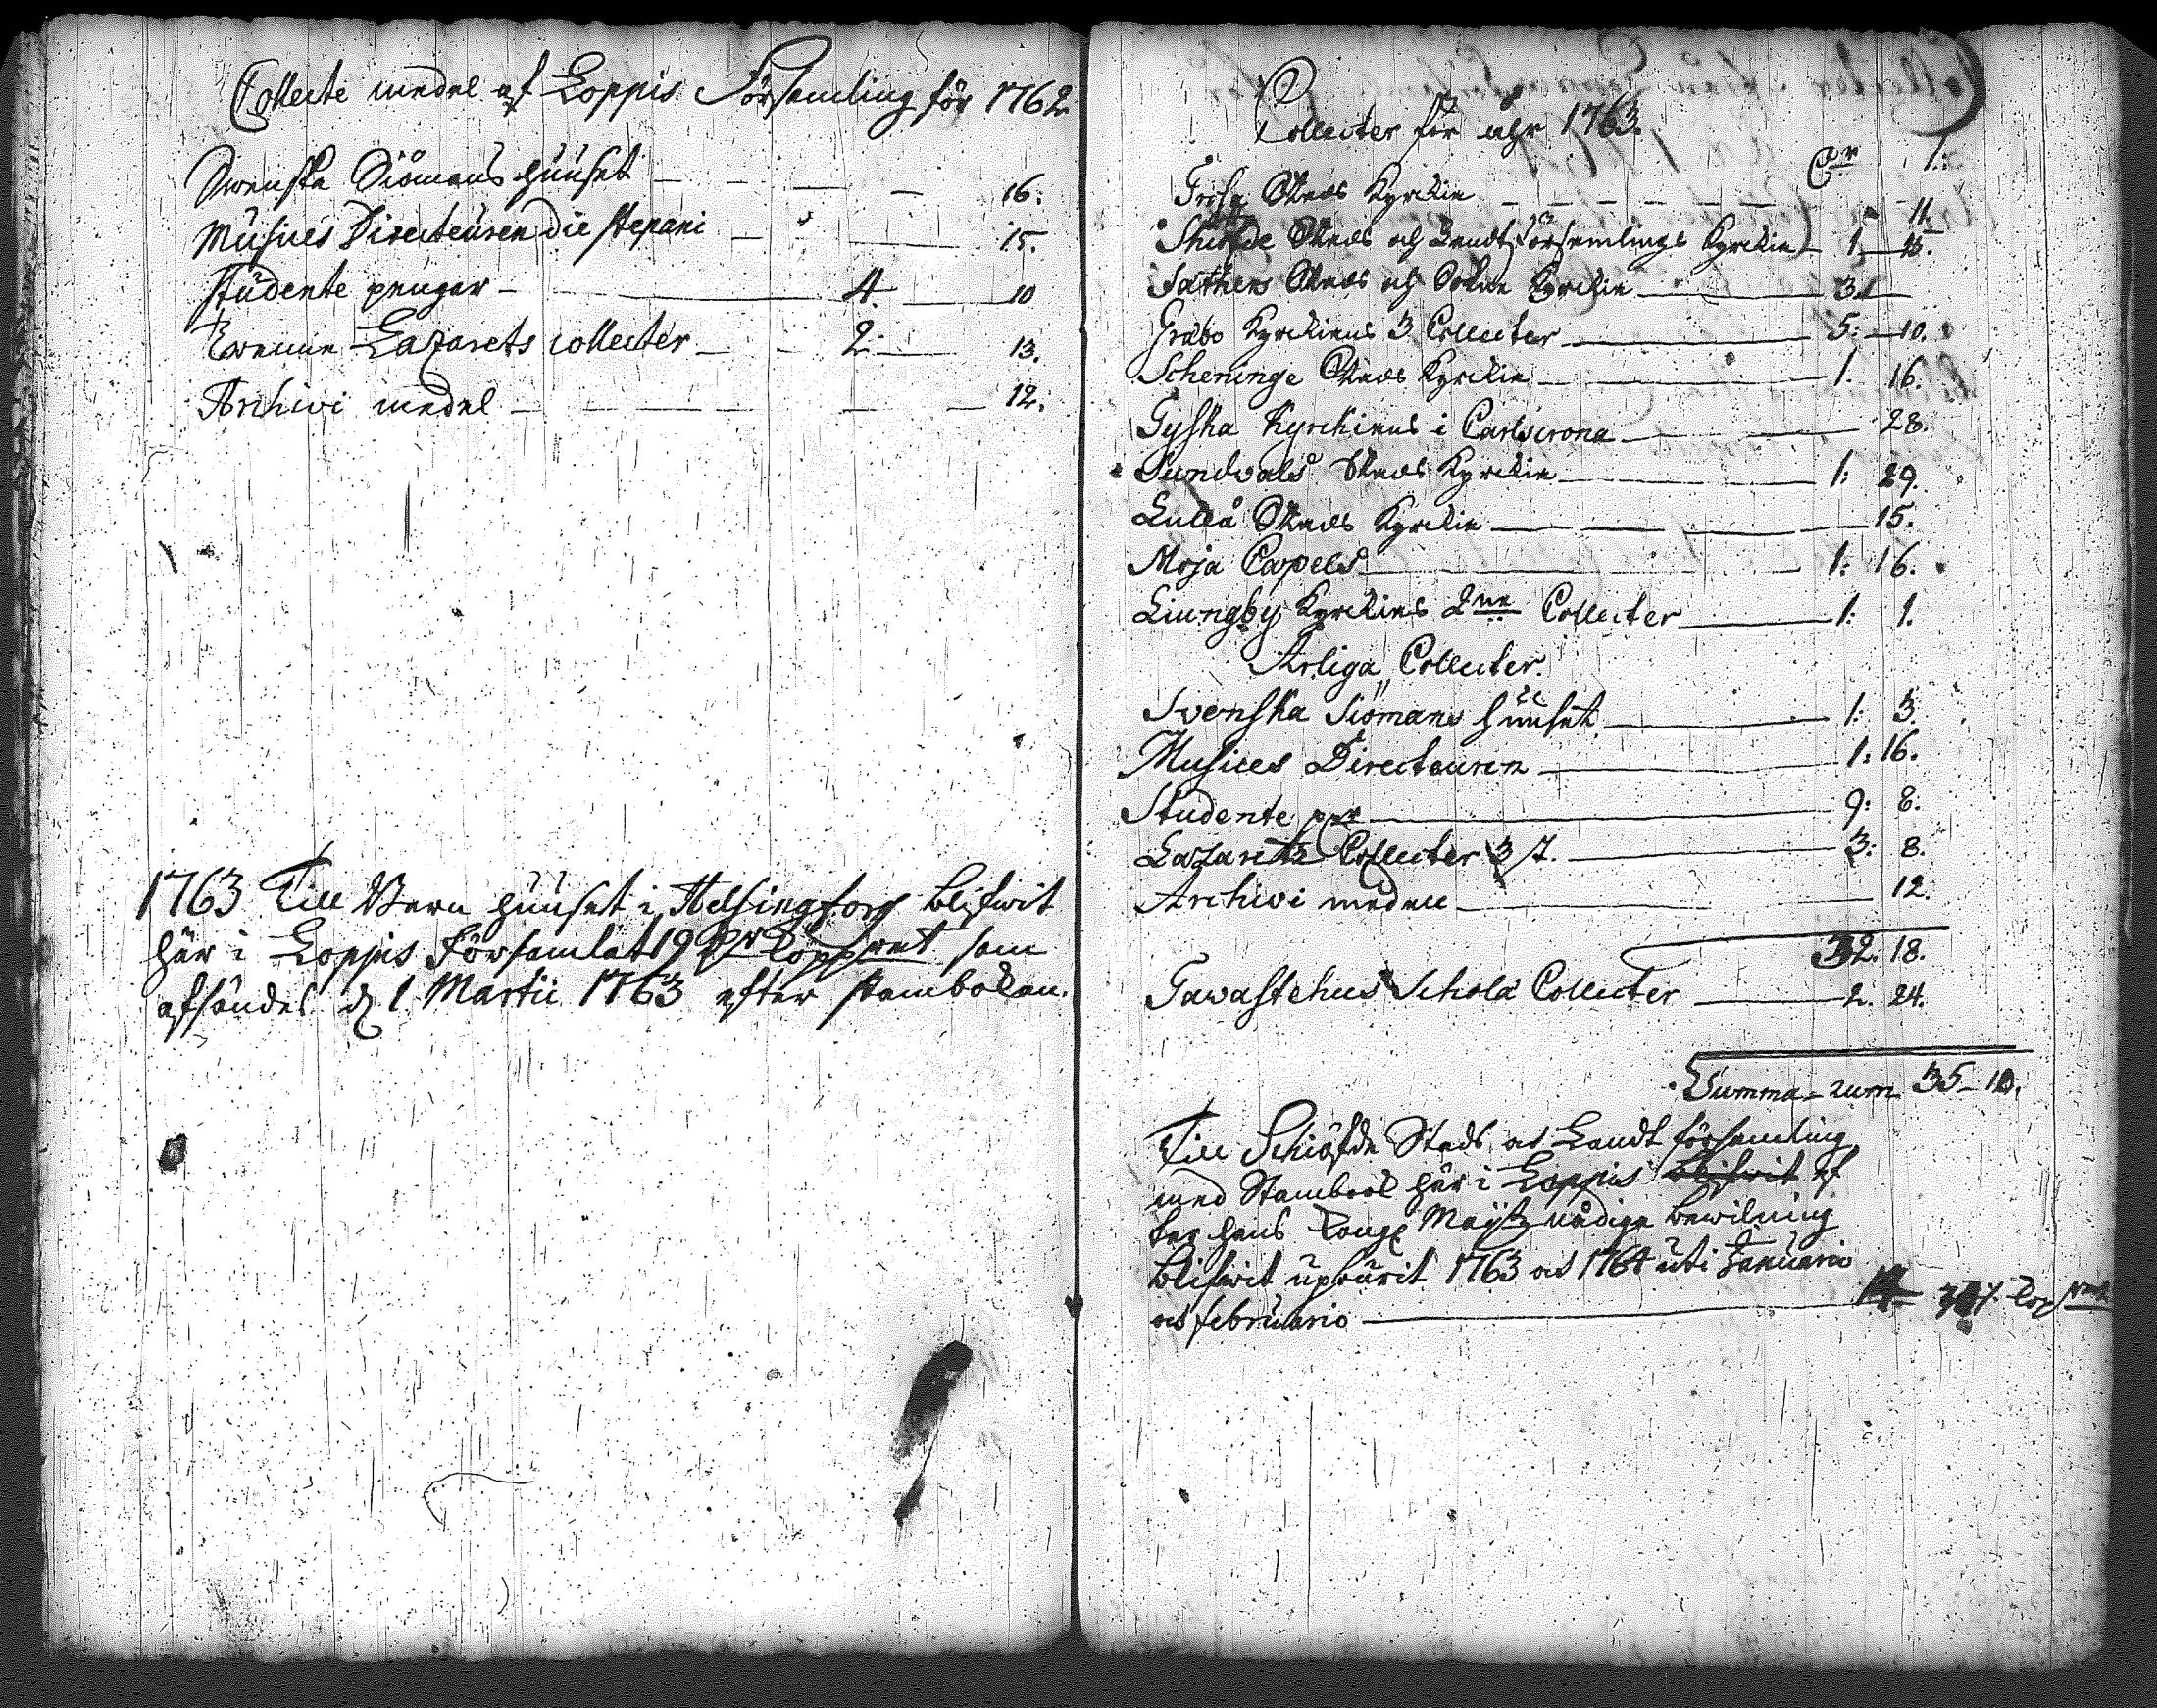 Collecte medel af Loppis Församling för 1762
Swenska Siömans huuset — — — — 16.
Musices Directeuren die stepani — — 15.
studente pengar — — 4. — 10
Twenne Lazarets collecter — — 2. — 13.
Archivi medel — — — — — 12.
1763 Till Barn huuset i Helsingfors blifwit
här i Loppis Församlat 19 som
afsändes d 1 Martii 1763 efter stambocken.
Collecter för åhr 1763.
Trosa Stads Kyrckia — — — — —
11
Skiöfde Stads och Landt Församlings Kyrckia — 1.
Sathers Stads och Sokne Kyrckia — 3.
Gråbo Kyrckians 3 Collecter — 5: — 10.
Scheninge Stads Kyrckia — 1. 16.
Tyska Kyrckians i Carlscrona — 28.
Sundvals Stads Kyrckia — 1: 29.
Luleå Stads Kyrckia — 15.
Moja Capels — 1: 16.
Liungby Kyrckias 2ne Collecter — 1: 1.
Årliga Collecter.
Svenska Siömans huuset — 1: 3.
Musices Directeuren — 1: 16.
Studente — 9: 8.
Lazarets Collecter 3 — 3: 8.
Archivi medell — 12.
32. 18.
Tawastehus Schola Collecter — 2. 24.
Summa — 35 — 10.
Till Schiöfde Stads och Landt församling
med Stambock här i Loppis blifwit ef
ter hans Kongl Maytz nådiga bewilning
blifwit upburit 1763 och 1764 uti Januario
och februario —